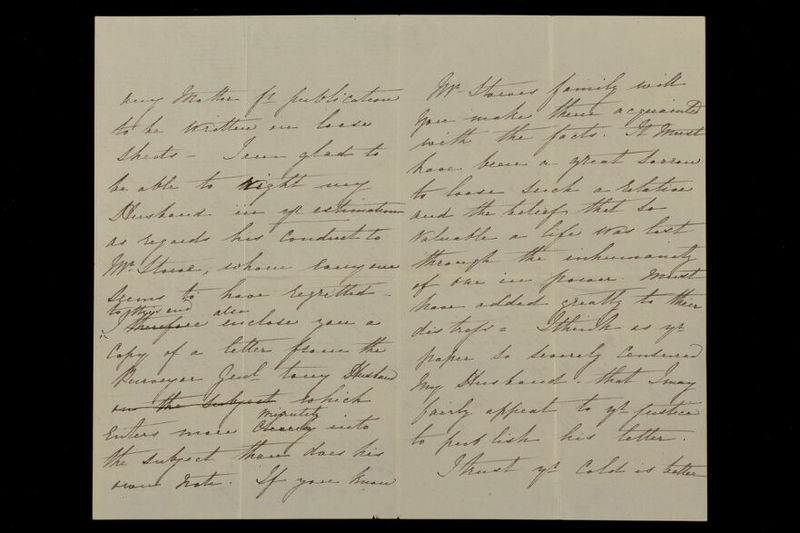 any Matter fr publication
to be written on loose
sheets - I am glad to
be able to right my
Husband in yr estimation
as regards his conduct to
Mr Stowe, whom everyone
seems to have regretted -
to this end also
I therefore enclose you a
Copy of a letter from the
Purveyor Genl to my Husband
on the subject which
minutely
Enters more Clearly into
the subject than does his
own note. If you know
Mr Stowes family will
you make them acquainted
with the facts. It Must
have been a great sorrow
to loose such a relation
and the belief that so
valuable a life was lost
through the inhumanity
of one in power. Must
have added greatly to their
distress = I think as yr
paper so severely censured
My Husband. that I may
fairly appeal to yr justice
to publish his letter.
I trust yr Cold is better